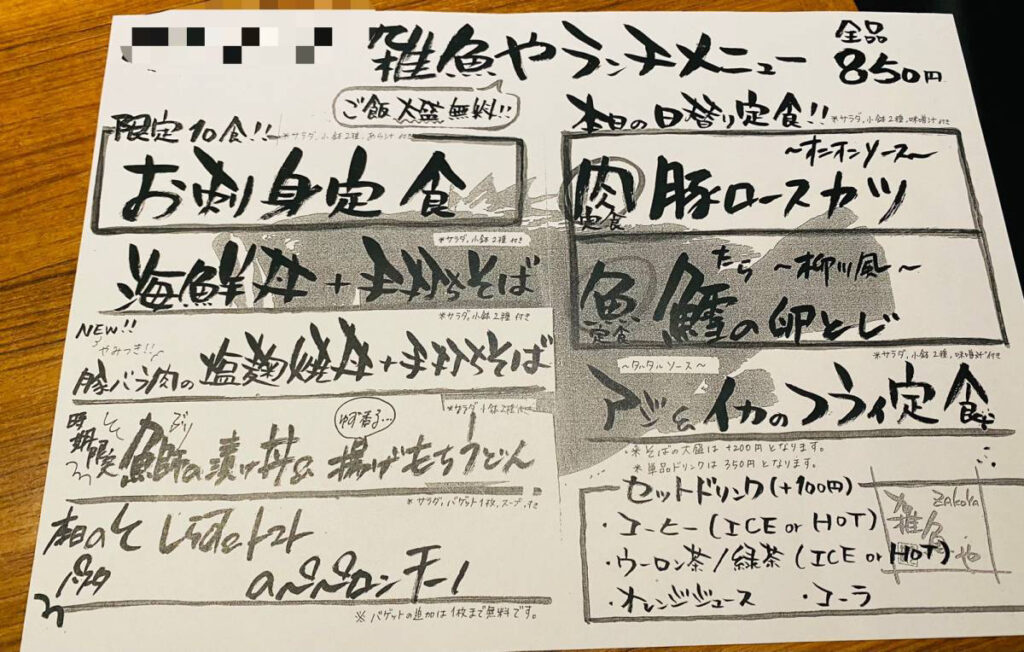 雑魚やランチメニュー
全品
850円
ご飯大盛無料!!
限定10食!!
※サラダ、小鉢2種、あら汁付き
お刺身定食
※サラダ、小鉢2種付き
海鮮丼+手打ちそば
※サラダ、小鉢2種付き
NEW!!
やみつき!!
豚バラ肉の塩麹焼丼+手打ちそば
※サラダ、小鉢2種付き
時期限定
ぶり
ゆず香る…
鰤の漬け丼&揚げもちうどん
※サラダ、バゲット1枚、スープ付き
本日の
パスタ
しらすとトマト
のペペロンチーノ
※バゲットの追加は1枚まで無料です。
本日の日替り定食!!
※サラダ、小鉢2種、味噌汁付き
~オニオンソース~
肉定食
豚ロースカツ
たら
~柳川風~
魚定食
鱈の卵とじ
※サラダ、小鉢2種、味噌汁付き
~タルタルソース~
アジ&イカのフライ定食
※そばの大盛は+200円となります。
※単品ドリンクは350円となります。
セットドリンク(+100円)
・コーヒー(ICE or HOT)
・ウーロン茶/緑茶(ICE or HOT)
・オレンジジュース ・コーラ
ZAKOYA
雑魚や